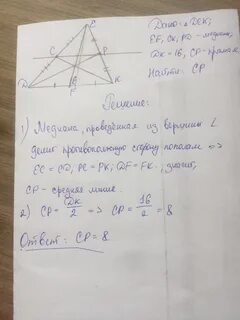 E
C
P
D
F
K
Дано: △DEK;
EF, CK, PD - медианы,
DK = 16, CP - прямая
Найти: CP
Решение:
1) Медиана, проведённая из вершины
делит противоположную сторону пополам =>
EC = CD, PE = PK, DF = FK, значит,
CP - средняя линия.
2) CP = DK/2 => CP = 16/2 = 8
Ответ: CP = 8